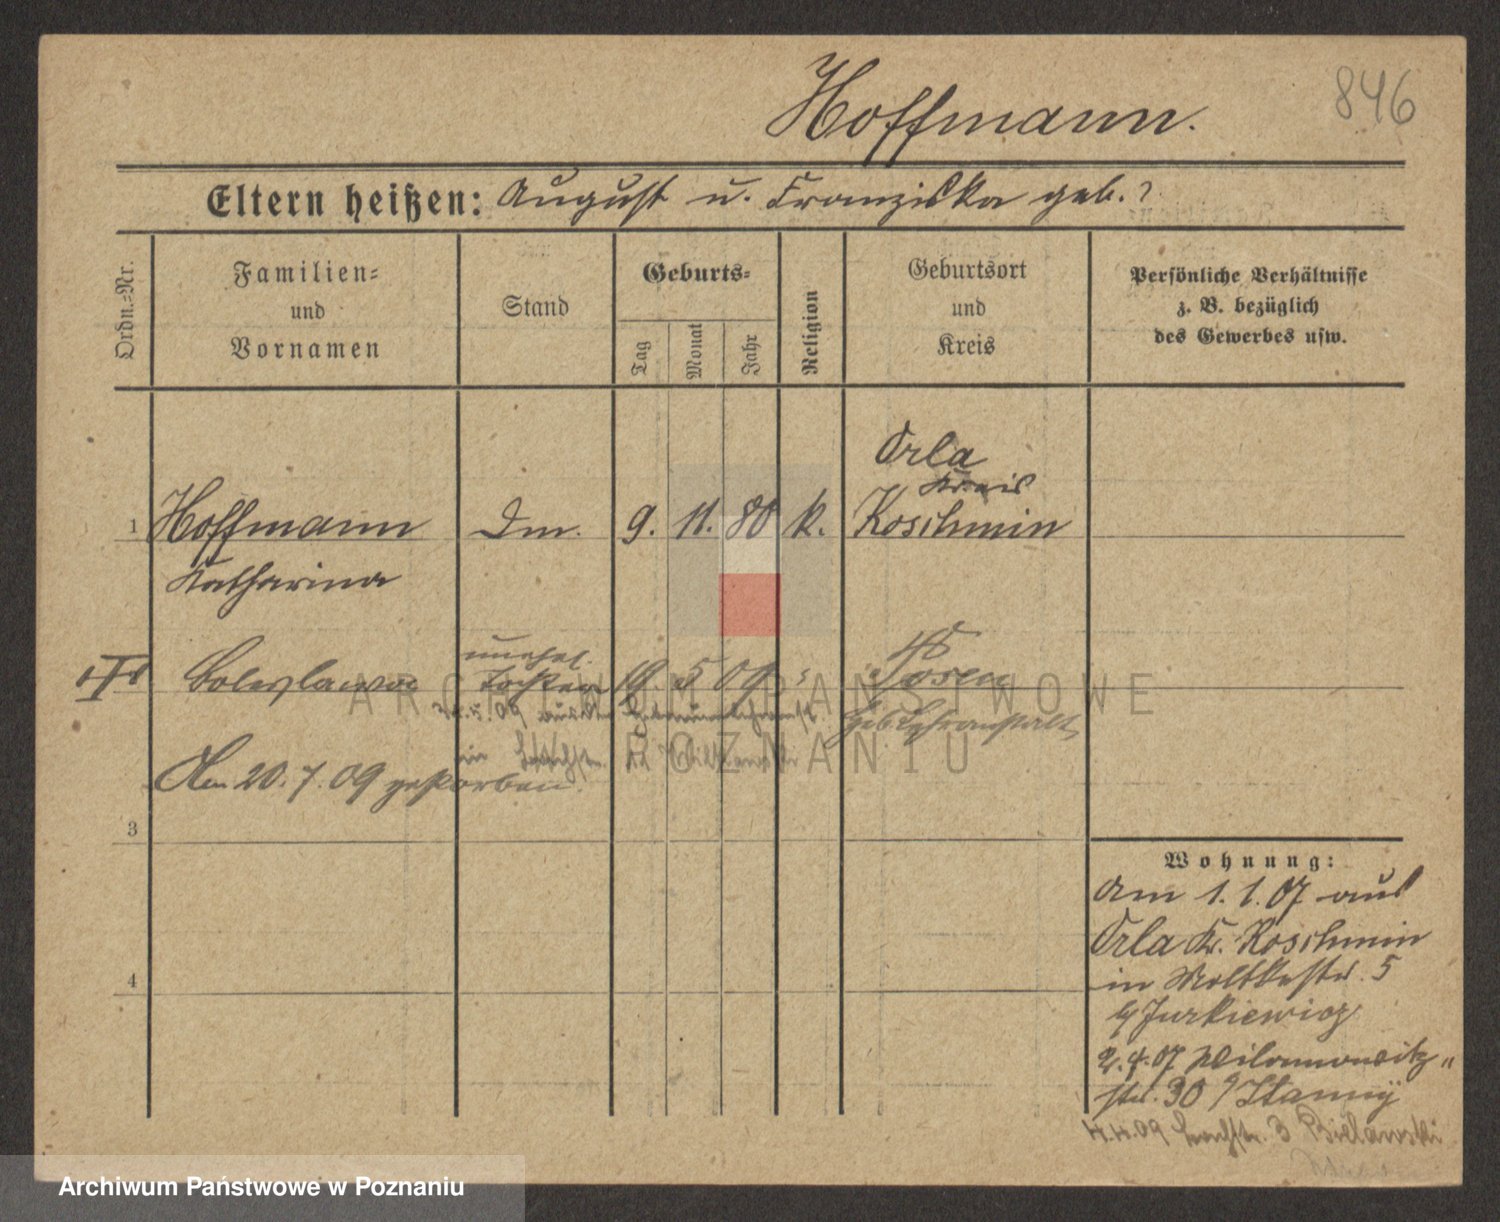 Hoffmann.
846
Eltern heißen: August u. Franziska geb. ?
Ordn.=Nr.
Familien=
und
Vornamen
Stand
Geburts=
Tag
Monat
Jahr
Religion
Geburtsort
und
Kreis
Persönliche Verhältnisse
z. B. bezüglich
des Gewerbes usw.
Orla
Kreis
1 Hoffmann Dm. 9. 11. 80 k. Koschmin
Katharina
unehel.
Boleslawa Tochter 19 5 09 Posen
24.5.09 aus der Hebammenlehranst.
Heb Lehranstalt
Am 20.7.09 gestorben.
3
4
Wohnung:
Am 1.1.07 aus
Orla Kr. Koschmin
in Moltkestr. 5
b/ Jurkiewicz
2.4.07 Wilamowitz
str. 30
4.4.09 3 Bielawski
ARCHIWUM PAŃSTWOWE
W POZNANIU
Archiwum Państwowe w Poznaniu